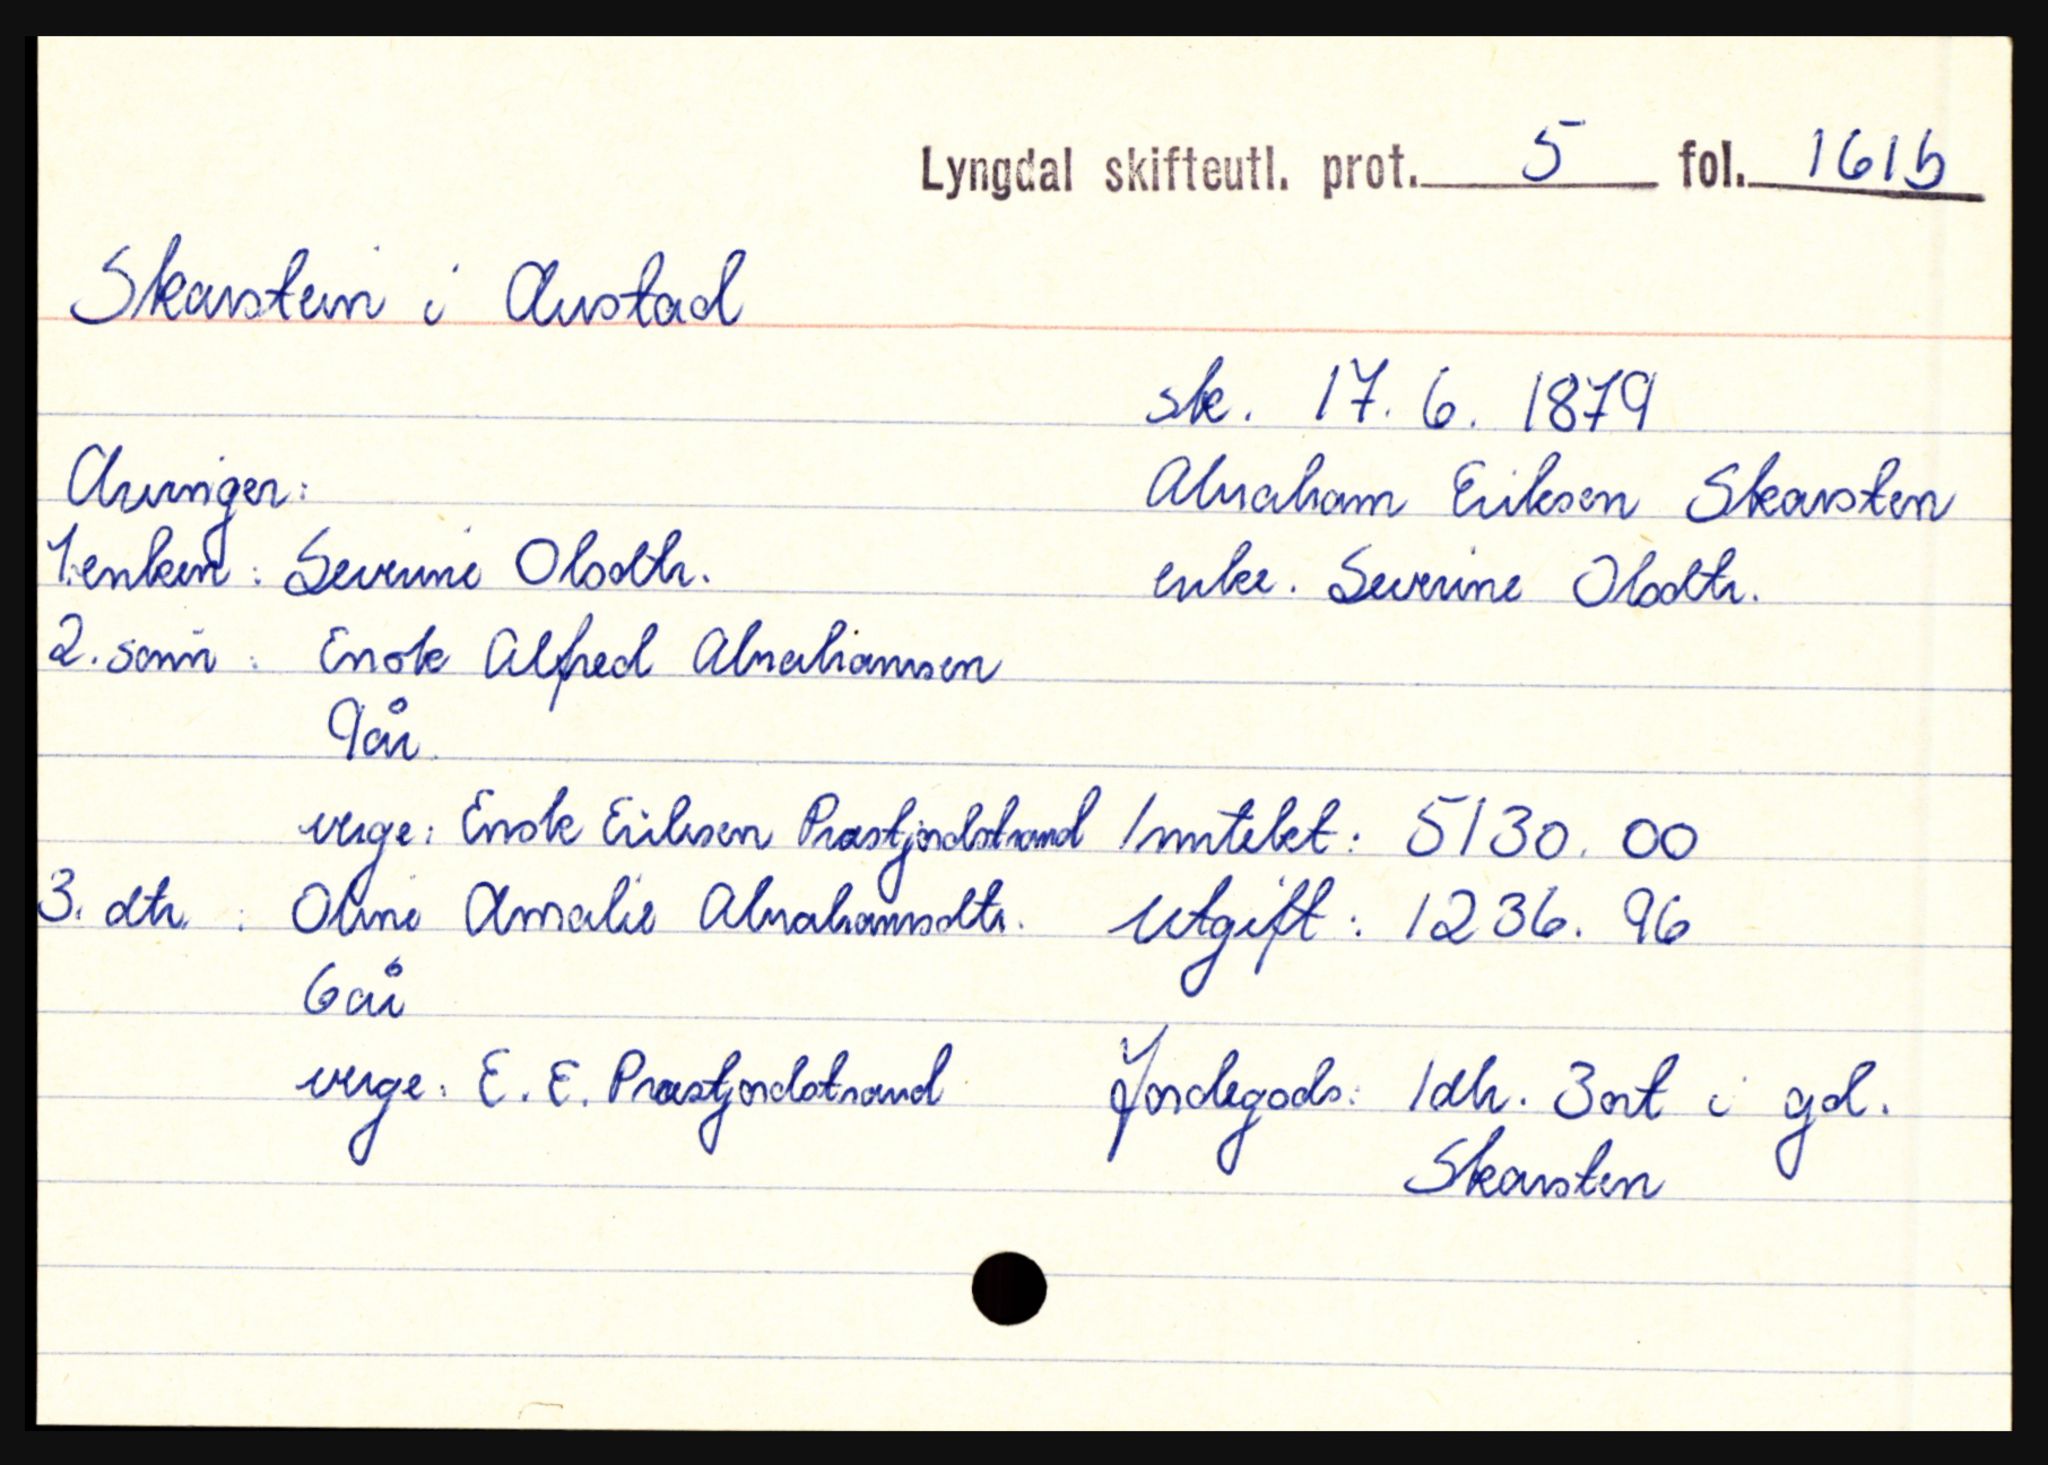 Lyngdal skifteutl. prot. 5 fol. 161b
Skarstein i Austad
sk. 17. 6. 1879
Arvinger:
Abraham Eriksen Skarsten
1. enken: Severine Olsdtr.
enke. Severine Olsdtr.
2. sønn: Enok Alfred Abrahamsen
9 år.
verge: Enok Eriksen Præstjordstrand
Inntekt: 5130.00
3. dtr.: Oline Amalie Abrahamsdtr.
Utgift: 1236.96
6 år
verge: E. E. Præstjordstrand
Jordegods: 1 dlr. 3 ort i gd.
Skarsten